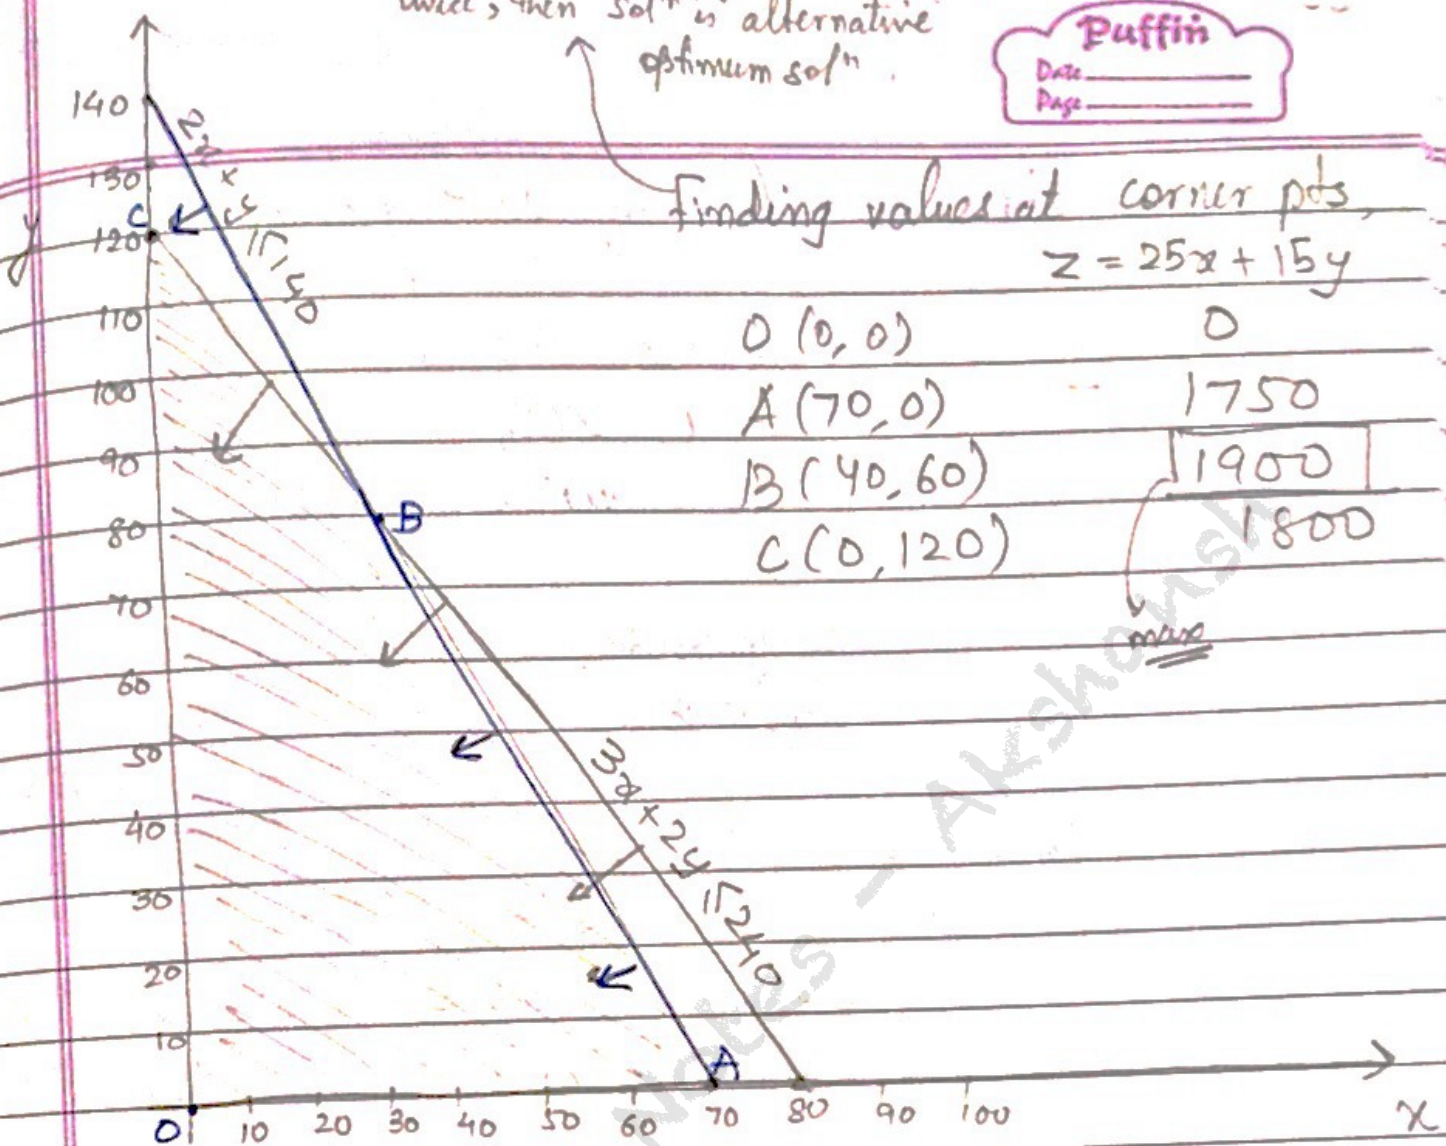 twice, then solⁿ is alternative
optimum solⁿ.
Puffin
Date
Page
Finding values at corner pts,
z = 25x + 15y
O (0, 0) 0
A (70, 0) 1750
B (40, 60) 1900
C (0, 120) 1800
max
y
140
130
C
120
110
100
90
80
70
60
50
40
30
20
10
B
3x + 2y ≤ 240
A
O 10 20 30 40 50 60 70 80 90 100
x
Notes - Akshansh